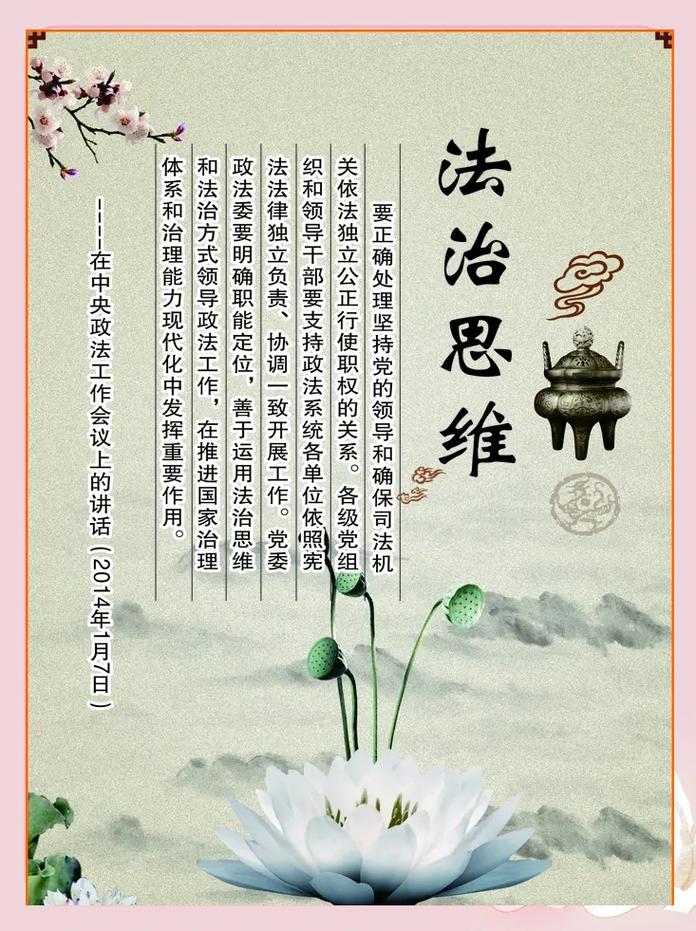 法治思维
要正确处理坚持党的领导和确保司法机
关依法独立公正行使职权的关系。各级党组
织和领导干部要支持政法系统各单位依照宪
法法律独立负责、协调一致开展工作。党委
政法委要明确职能定位，善于运用法治思维
和法治方式领导政法工作，在推进国家治理
体系和治理能力现代化中发挥重要作用。
----在中央政法工作会议上的讲话（2014年1月7日）